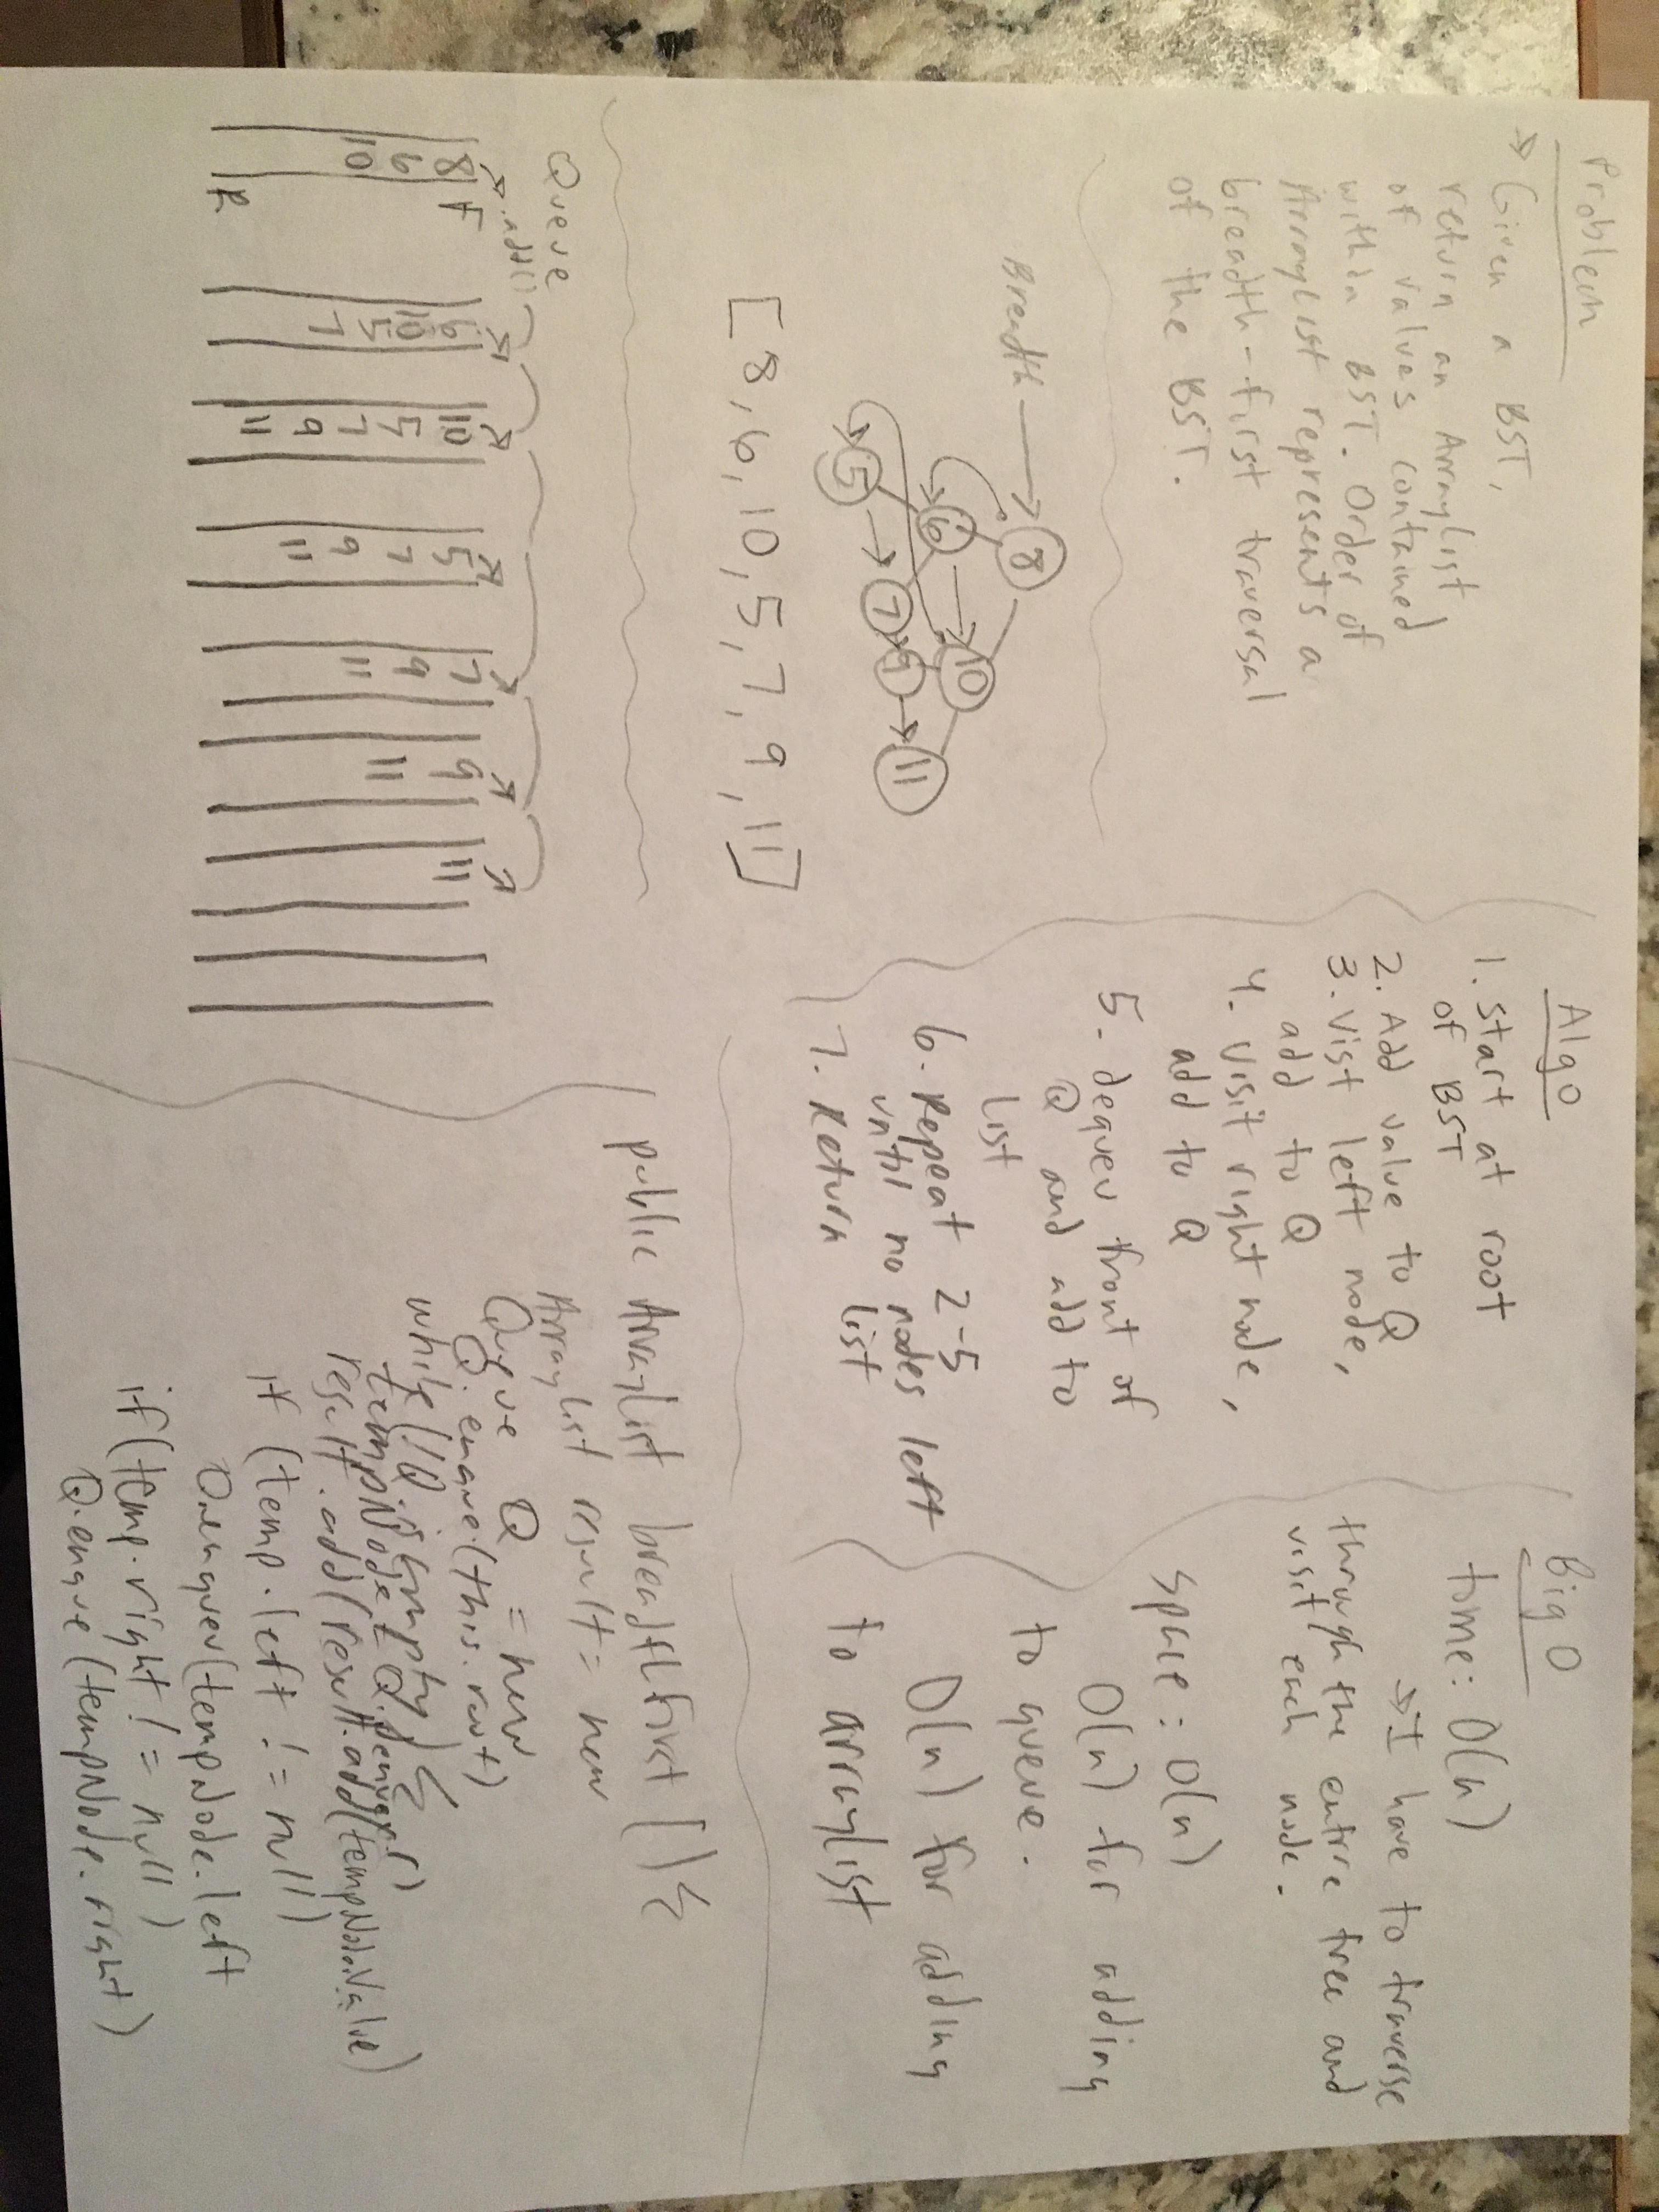 Problem
→ Given a BST,
return an ArrayList
of values contained
within BST. Order of
ArrayList represents a
breadth-first traversal
of the BST.
Breadth →
8
6 10
5 7 9 11
[8, 6, 10, 5, 7, 9, 11]
Queue
.add()
F
8 6 10 5 7 9 11
6 10 5 7 9 11
10 5 7 9 11
7 9 11
11
R
Algo
1. start at root
of BST
2. Add value to Q
3. Vist left node,
add to Q
4. Visit right node,
add to Q
5. dequeu front of
Q and add to
list
6. Repeat 2-5
until no nodes left
7. Return list
Big O
time: O(n)
→ I have to traverse
through the entire tree and
visit each node.
Space: O(n)
O(n) for adding
to queue.
O(n) for adding
to arraylist
public ArrayList breadthFirst(){
ArrayList result = new
Queue Q = new
Q.enque(this.root)
while(!Q.isEmpty){
tempNode = Q.deque()
result.add(result.add(tempNode.Value)
if (temp.left != null)
Q.enqueu(tempNode.left
if(temp.right != null)
Q.enque(tempNode.right)